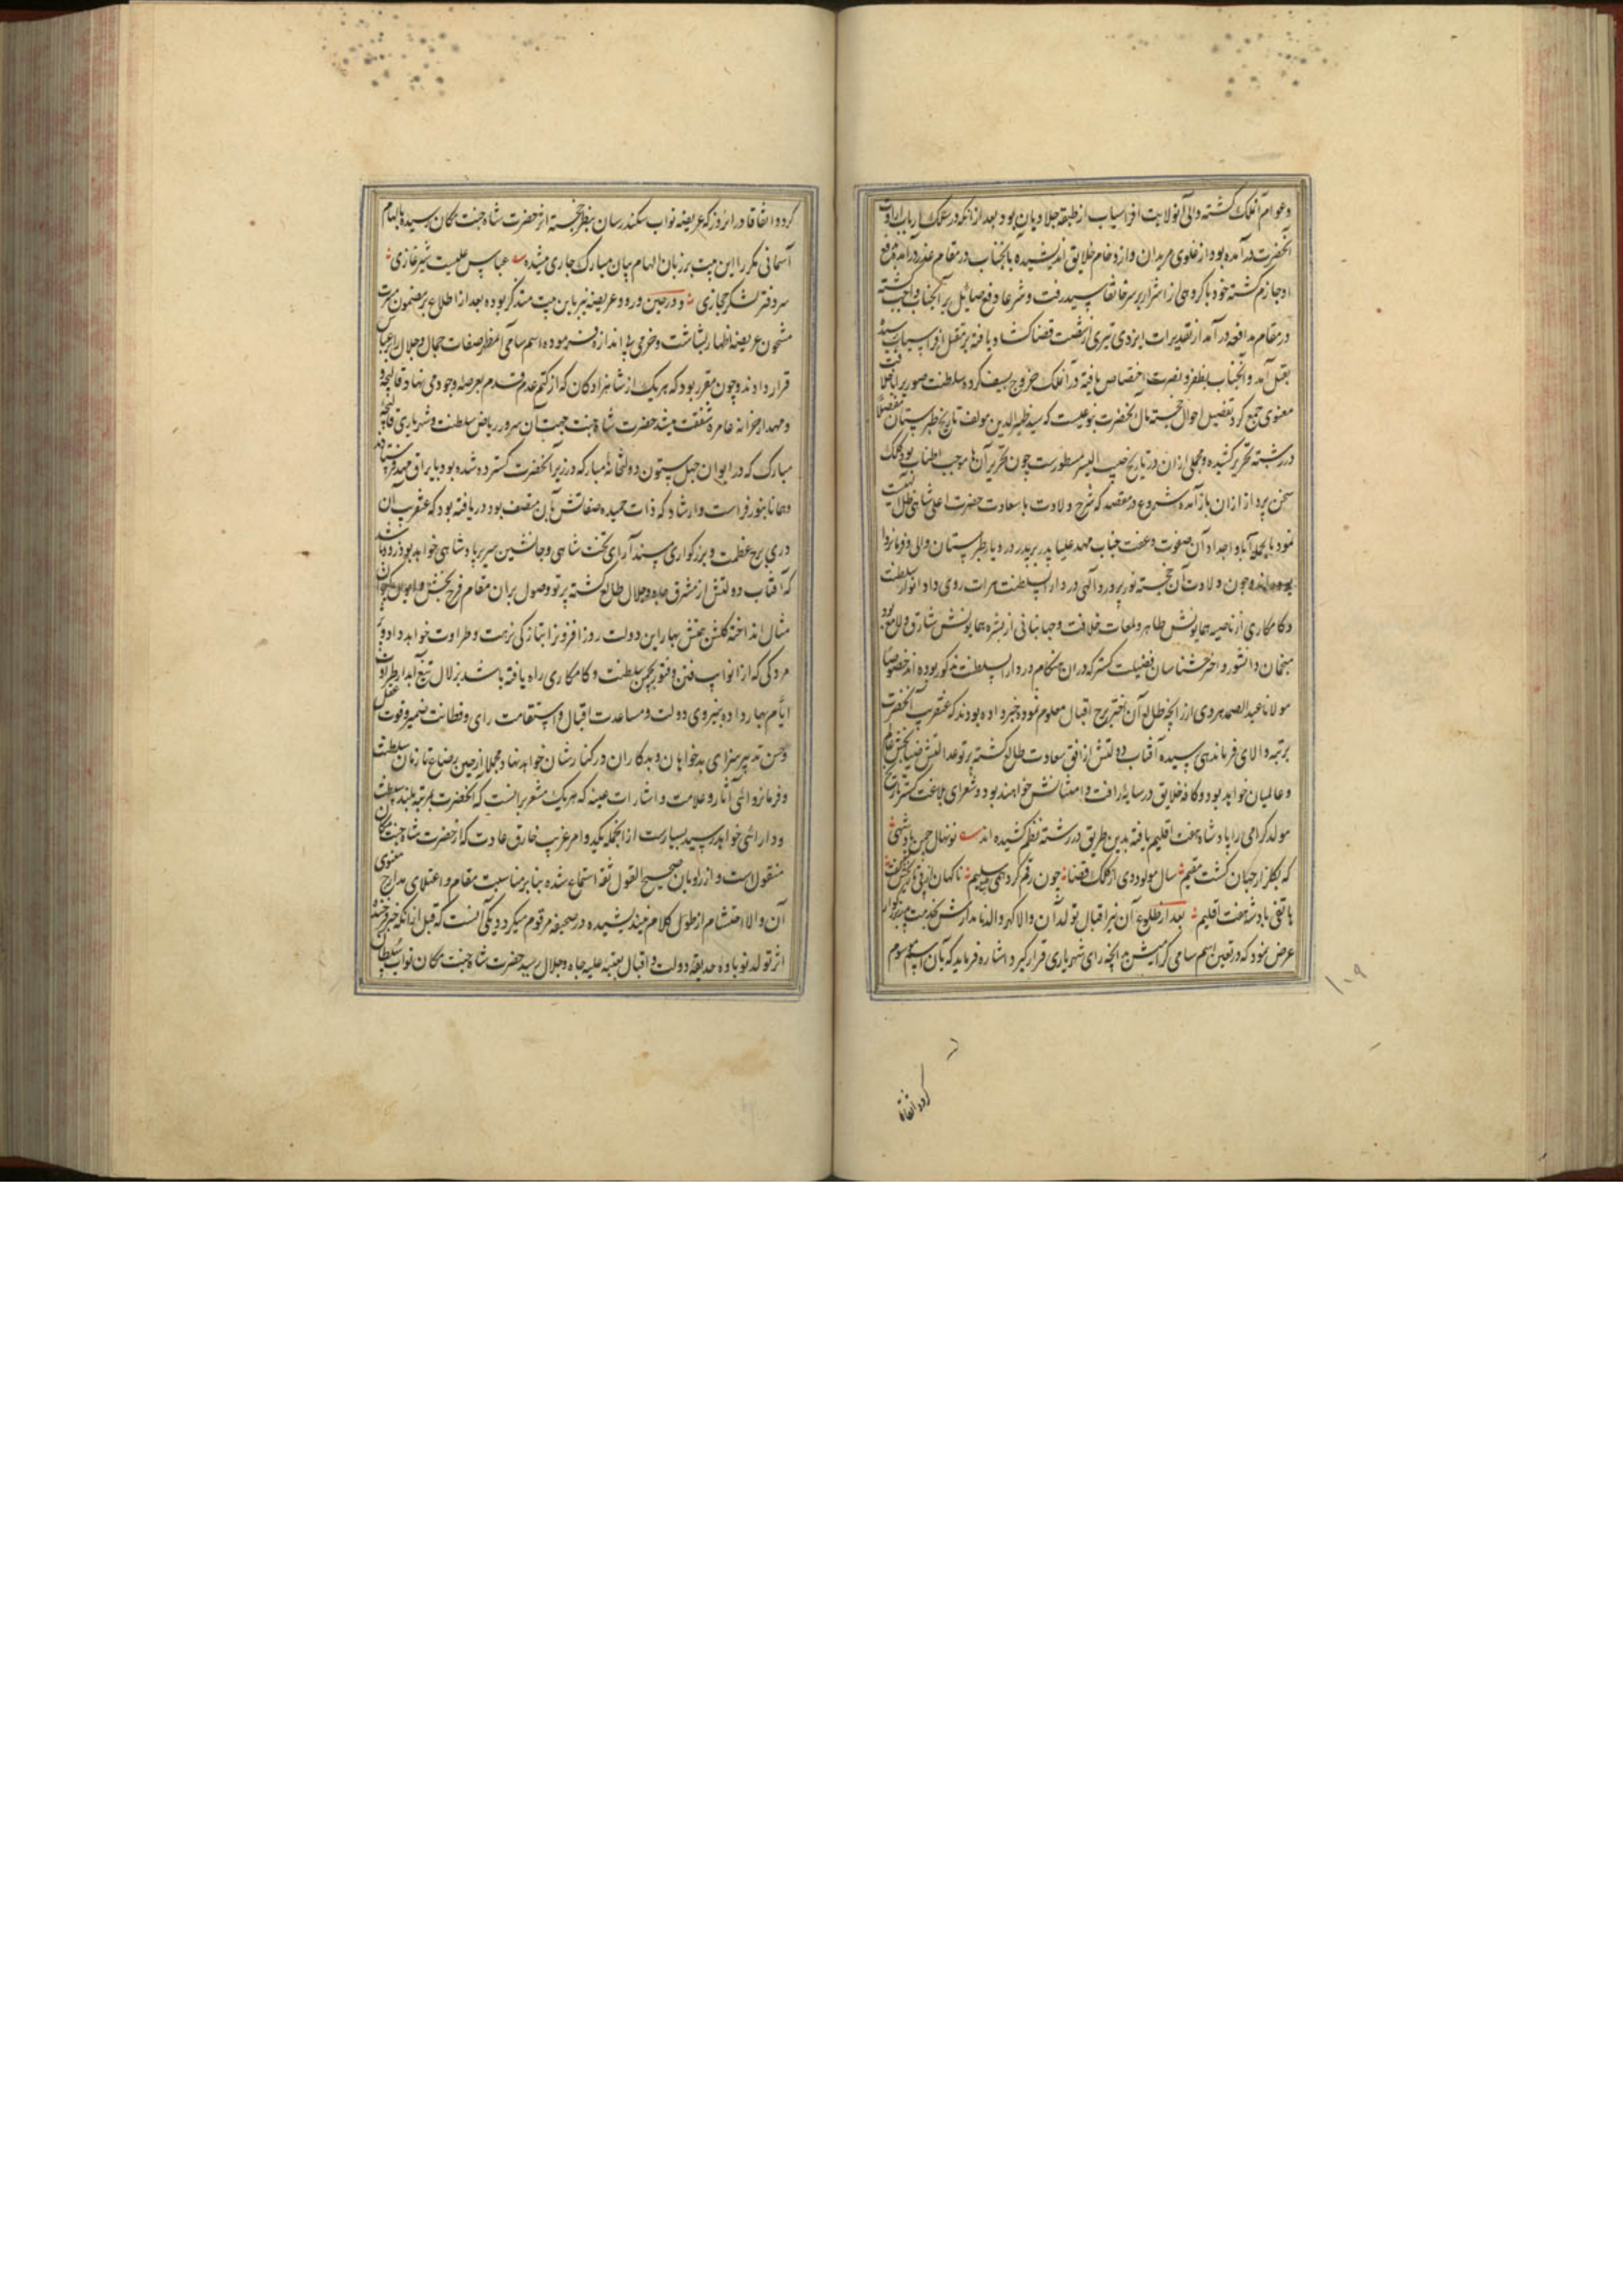 و عوام آنملک گشته والی آنولایت افراسیاب از طبقه جلاویان بود بعد از آنکه در سلک ارباب ارادت
آنحضرت درآمده بود از غلوی مریدان و ازدحام خلایق اندیشیده بآنجناب در مقام عذر درآمد دفع
او جازم گشته خود با گروهی از اشرار بر سر خانقاه سید رفت و شرعا دفع صائل بر آنجناب واجب گشته
در مقام مدافعه درآمد از تقدیرات ایزدی تیری از شست قضا گشاد یافته بر مقتل افراسیاب رسیده
بقتل آمد و آنجناب بظفر و نصرت اختصاص یافته در آنملک خروج بسیف کرده سلطنت صوری را با خلافت
معنوی جمع کرد تفصیل احوال خجسته مآل آنحضرت بنوعیست که سید ظهیرالدین مولف تاریخ طبرستان مفصلا
در رشته تحریر کشیده و مجملی از آن در تاریخ حبیب السیر مسطورست چون تحریر آن‌ها موجب اطناب بود کلک
سخن پرداز از آن باز آمده شروع در مقصد که شرح ولادت با سعادت حضرت اعلی شاهی ظل اللهیست
نمود بالجمله آبا و اجداد آن صفوت و عفت جناب مهد علیا پدر بر پدر در دیار طبرستان والی و فرمانروا
بوده‌اند و چون ولادت آن خجسته نور پرورد الهی در دارالسلطنت هرات روی داد انوار سلطنت
و کامکاری از ناصیه همایونش ظاهر و لمعات خلافت و جهانبانی از بشره همایونش شارق و لامع بود
منجمان دانشور و اخترشناسان فضیلت گستر که در آن هنگام در دارالسلطنت مذکور بوده‌اند خصوصا
مولانا عبدالصمد هروی از زایجه طالع آن اختر برج اقبال معلوم نموده خبر داده بودند که عنقریب آنحضرت
برتبه والای فرماندهی رسیده آفتاب دولتش از افق سعادت طالع گشته پرتو عدالتش ضیابخش عالم
و عالمیان خواهد بود و کافه خلایق در سایه رافت و امتنانش خواهند بود و شعرای بلاغت گستر تاریخ
مولد گرامی را پادشاه هفت اقلیم یافته بدین طریق در رشته نظم کشیده‌اند نونهال چمن پادشهی
که بگلزار جهان گشت مقیم سال مولود وی از کلک قضا چون رقم کرد همی سلیم ناگهان از پی تاریخش گفت
هاتفی پادشه هفت اقلیم بعد از طلوع آن نیر اقبال تولد آن والا گهر والد نامدارش بخدمت پدر بزرگوار
عرض نمود که در تعیین اسم سامی گرامیش آنچه رای شهریاری قرار گیرد اشاره فرماید که بآن اسم موسوم
کرده اتفاقا
۱۰۹
کرد و اتفاقا در آنروز که عریضه نواب سکندرشان بنظر خجسته اثر حضرت شاه جنت مکان رسیده بالهام
آسمانی مکرر این بیت بر زبان الهام بیان مبارک جاری میشده عباس علیست شیر غازی
سر دفتر لشکر حجازی و در حین ورود عریضه نیز باین بیت متذکر بوده بعد از اطلاع بر مضمون مسرت
مشحون عریضه اظهار بشاشت و خرمی بی‌اندازه فرموده اسم سامی آن مظهر صفات جمال و جلال را عباس
قرار دادند و چون مقرر بود که هر یک از شاهزادگان که از کتم عدم قدم بعرصه وجود می‌نهاد قالیچه
و مهد از خزانه عامره شفقت میشد حضرت شاه جنت جهت آن سرور ریاض سلطنت و شهریاری قالیچه
مبارک که در ایوان چهل ستون دولتخانه مبارکه در زیر آنحضرت گسترده شده بود با یراق مهد فرستادند
و همانا بنور فراست و ارشاد که ذات حمیده صفاتش بآن متصف بود دریافته بود که عنقریب آن
دری برج عظمت و بزرگواری مسندآرای تخت شاهی و جانشین سریر پادشاهی خواهد بود
که آفتاب دولتش از مشرق جاه و جلال طالع گشته پرتو وصول بر آن مقام فرح بخش و ایوان کیوان
مثال انداخته گلشن همیش بهار این دولت روزافزون را بتازگی نزهت و طراوت خواهد داد و
مردگی که از انواب فتن و فتور بچمن سلطنت و کامکاری راه یافته باشد بزلال تیغ آبدار طراوت
ایام بهار داده بنیروی دولت و مساعدت اقبال و استقامت رای و فطانت ضمیر و قوت عقل
و حسن تدبیر سزای بدخواهان و بدکاران در کنارشان خواهد نهاد و مجملا از حین رضاع تا زمان سلطنت
و فرمانروائی آثار و علامت و اشارات عینه که هر یک مشعر بر آنست که آنحضرت بمرتبه بلند سلطنت
و دارائی خواهد رسید بسیارست از آنجمله یکدو امر غریب خارق عادت که از حضرت شاه جنت مکان
منقول است و از راویان صحیح القول ثقه استماع شده بنابر مناسبت مقام و اعتلای مدارج معنوی
آن والا احتشام از طول کلام نیندیشیده در صحیفه مرقوم میگردد یکی آنست که قبل از آنکه خبر خجسته
اثر تولد نوباوه حدیقه دولت و اقبال بعتبه علیه جاه و جلال رسید حضرت شاه جنت مکان نواب سلطان